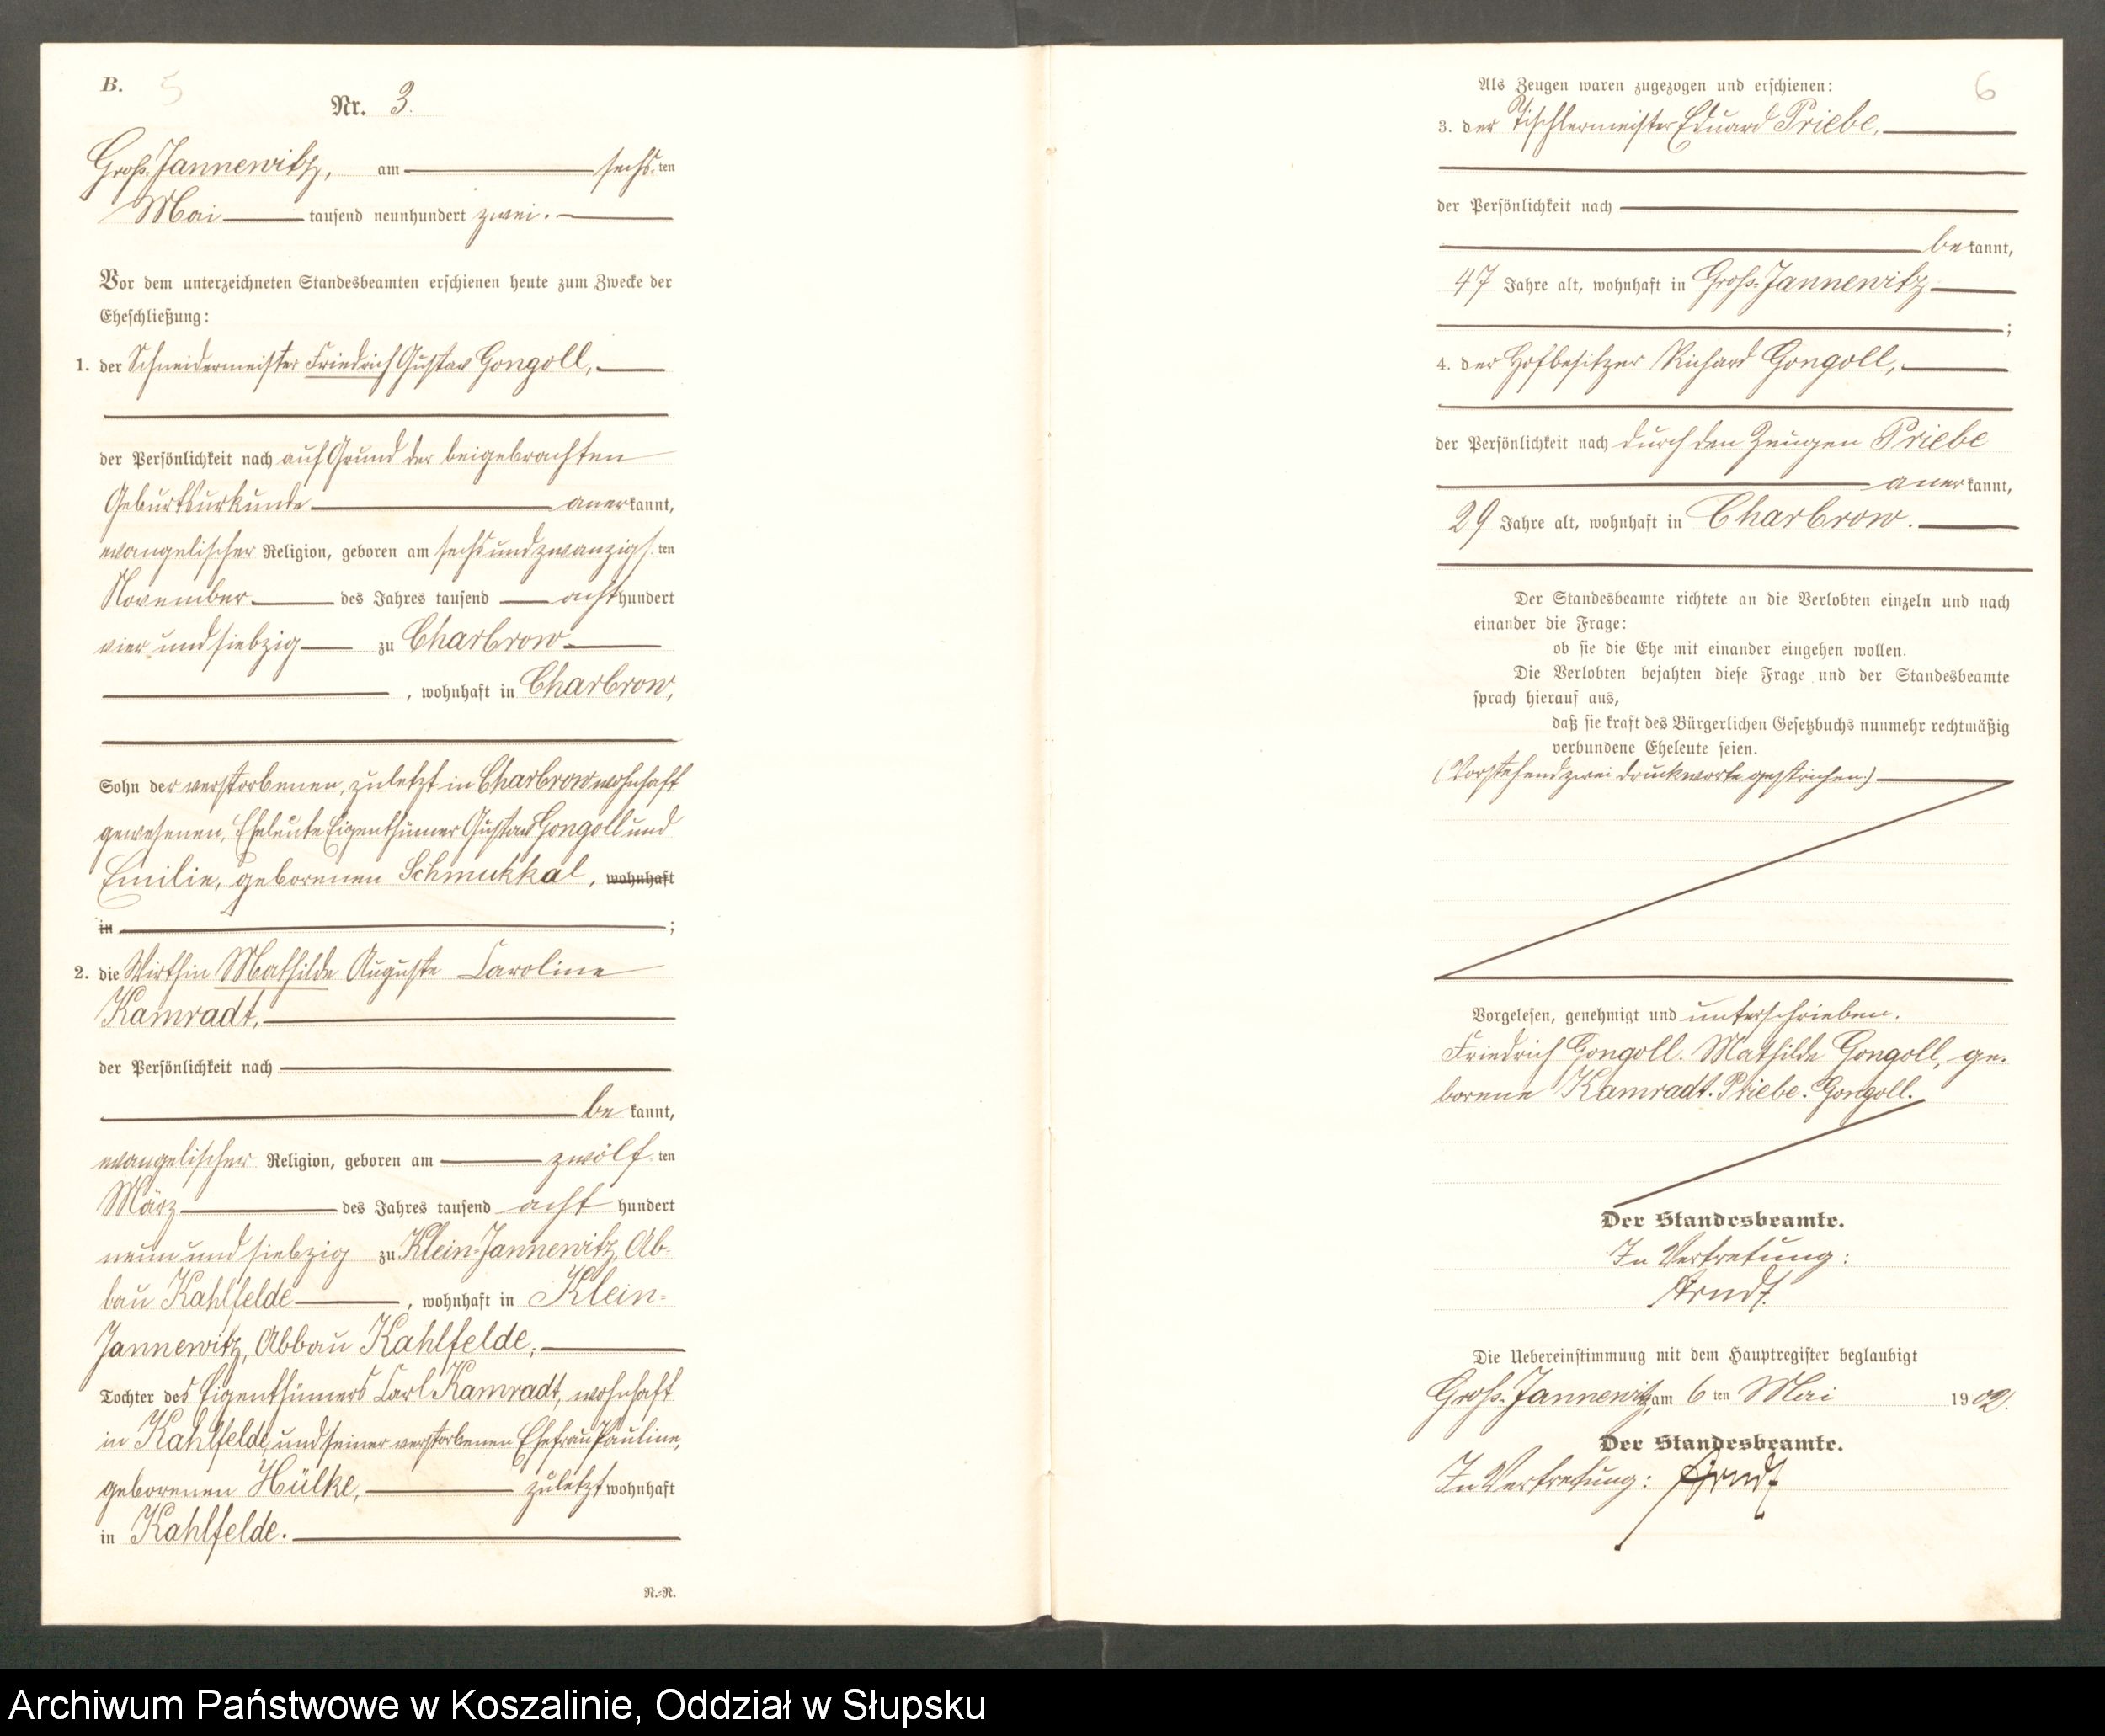 B. 5
Nr. 3.
Groß-Jannewitz, am sechsten
Mai tausend neunhundert zwei.
Vor dem unterzeichneten Standesbeamten erschienen heute zum Zwecke der
Eheschließung:
1. der Schneidermeister Friedrich Gustav Gongoll,
der Persönlichkeit nach auf Grund der beigebrachten
Geburtsurkunde anerkannt,
evangelischer Religion, geboren am sechsundzwanzigsten
November des Jahres tausend achthundert
vier und siebzig zu Charbrow
, wohnhaft in Charbrow,
Sohn der verstorbenen, zuletzt in Charbrow wohnhaft
gewesenen, Eheleute Eigenthümer Gustav Gongoll und
Emilie, geborenen Schmukkal, wohnhaft
in ;
2. die Wirthin Mathilde Auguste Caroline
Kamradt,
der Persönlichkeit nach
bekannt,
evangelischer Religion, geboren am zwölften
März des Jahres tausend acht hundert
neun und siebzig zu Klein-Jannewitz, Ab-
bau Kahlfelde, wohnhaft in Klein-
Jannewitz, Abbau Kahlfelde,
Tochter des Eigenthümers Carl Kamradt, wohnhaft
in Kahlfelde, und seiner verstorbenen Ehefrau Pauline,
geborenen Hülke, zuletzt wohnhaft
in Kahlfelde.
N.-R.
6
Als Zeugen waren zugezogen und erschienen:
3. der Tischlermeister Eduard Priebe,
der Persönlichkeit nach
bekannt,
47 Jahre alt, wohnhaft in Groß-Jannewitz
;
4. der Hofbesitzer Richard Gongoll,
der Persönlichkeit nach durch den Zeugen Priebe
anerkannt,
29 Jahre alt, wohnhaft in Charbrow.
Der Standesbeamte richtete an die Verlobten einzeln und nach
einander die Frage:
ob sie die Ehe mit einander eingehen wollen.
Die Verlobten bejahten diese Frage und der Standesbeamte
sprach hierauf aus,
daß sie kraft des Bürgerlichen Gesetzbuchs nunmehr rechtmäßig
verbundene Eheleute seien.
(Vorstehend zwei Druckworte gestrichen.)
Vorgelesen, genehmigt und unterschrieben.
Friedrich Gongoll. Mathilde Gongoll, ge-
borene Kamradt. Priebe. Gongoll.
Der Standesbeamte.
In Vertretung:
Arndt.
Die Uebereinstimmung mit dem Hauptregister beglaubigt
Groß-Jannewitz, am 6 ten Mai 1902.
Der Standesbeamte.
In Vertretung: Arndt
Archiwum Państwowe w Koszalinie, Oddział w Słupsku